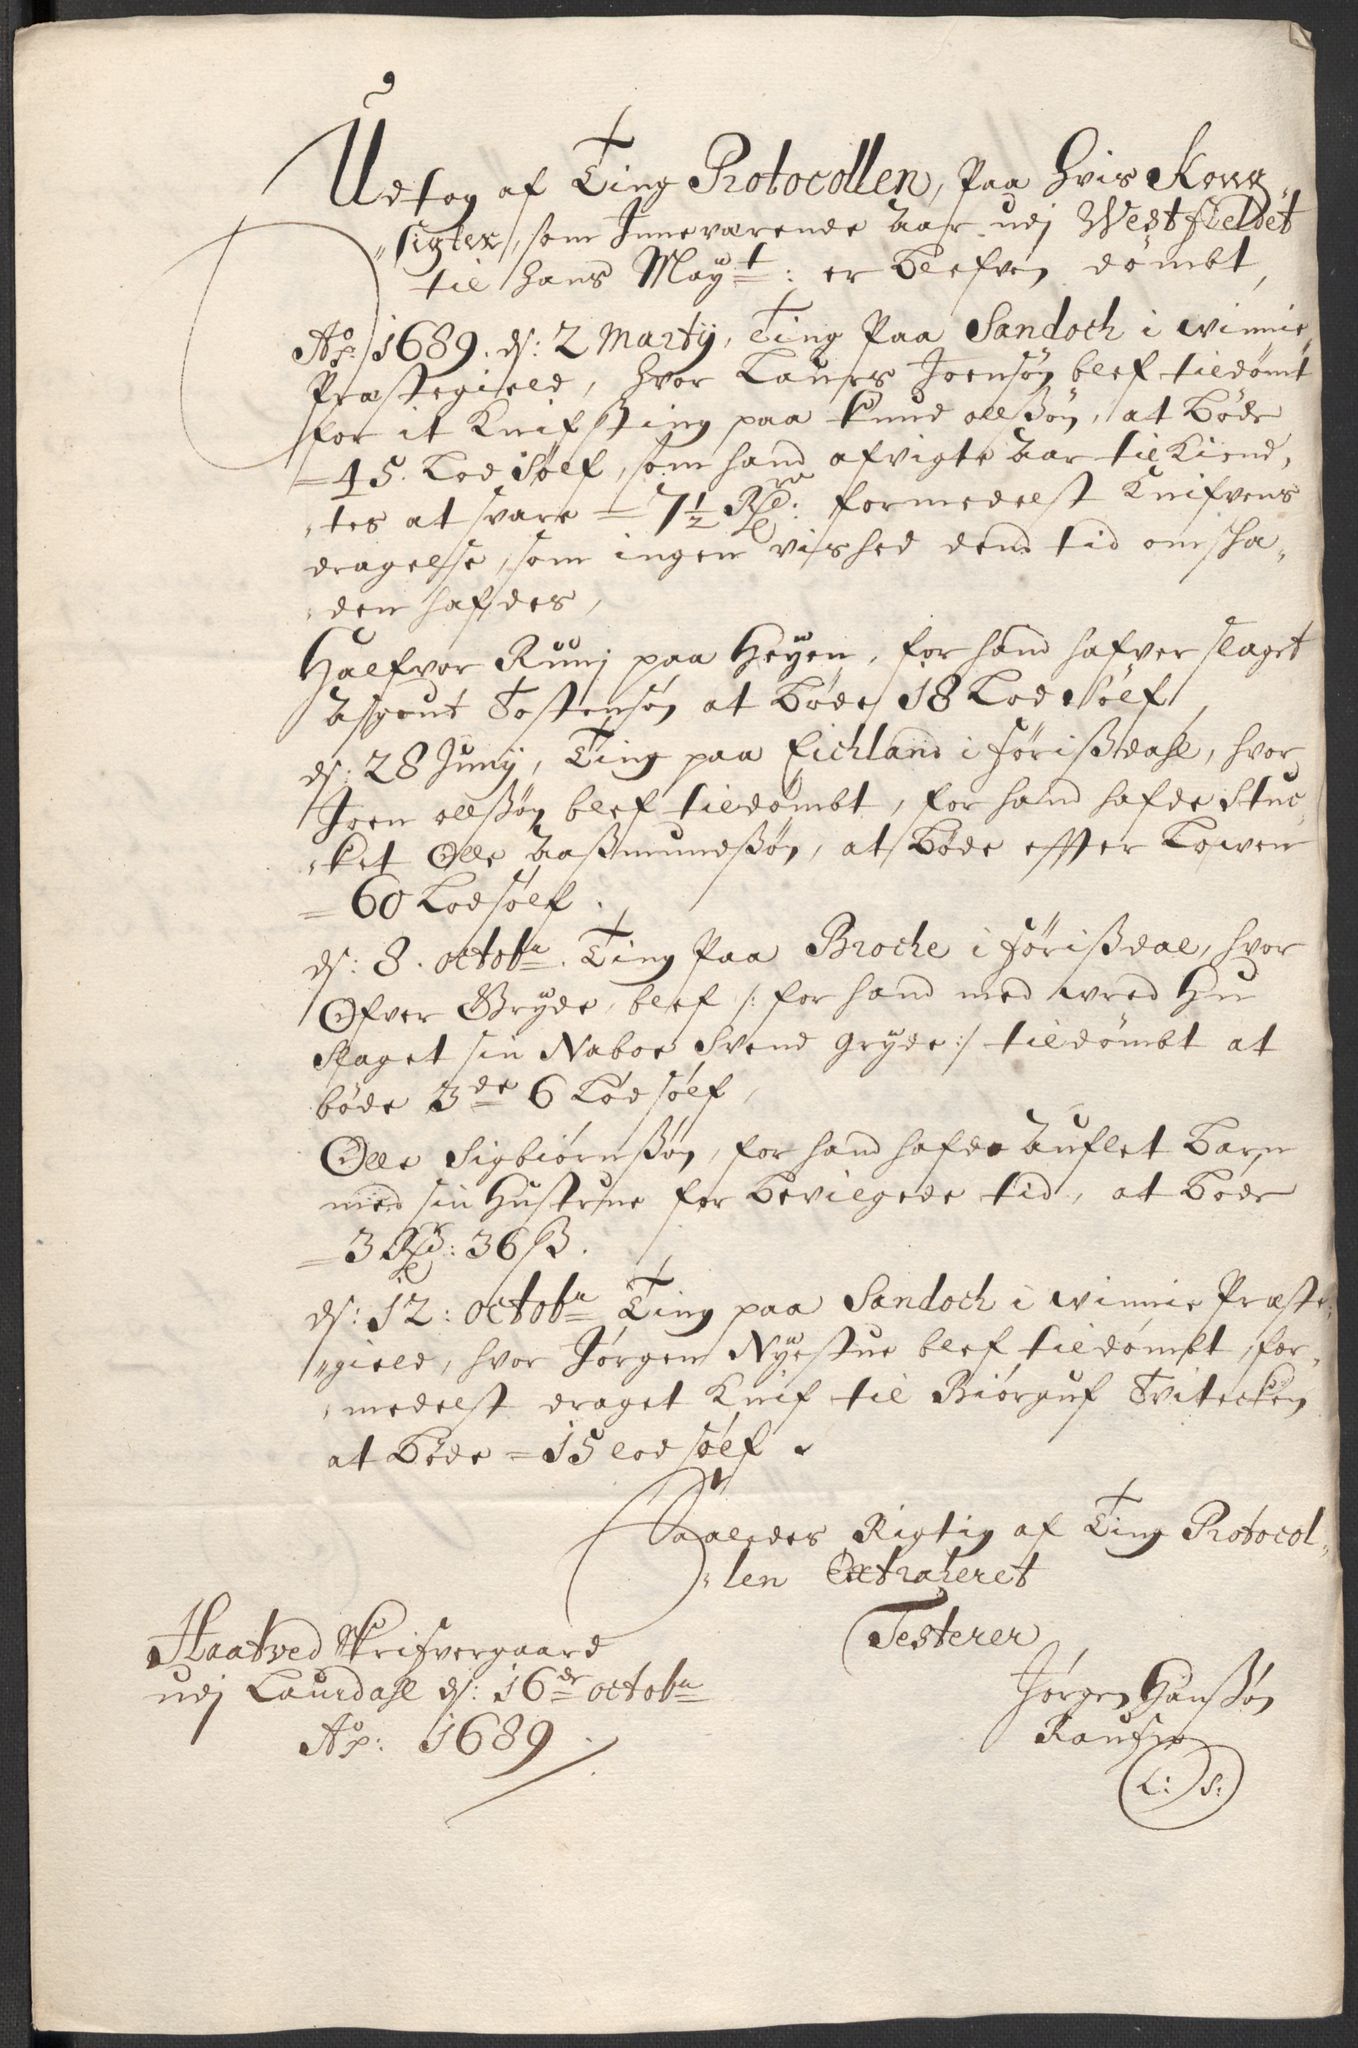 Udtog af Ting Protocollen, Paa hvis Kong
„sigter, som Inneværende Aar udj Westfieldet
til hans Mayt: er blefven dömbt,
Ao: 1689. ds: 2 Martij, Ting Paa Sandoch i Winnie„
Præstegield, hvor Laurs Joensøn blef tildømt
for it Knifsting paa Knud olleßøn, at bøde
= 45. Lod Sølf, som hand afvigte Aar tilkiend„
„tes at svare = 7½ Rdr: formedelst Knifvens
dragelse, som ingen vished dend tid om ska„
„den hafdes,
Halfvor Ruuj paa Heyen, for hand hafver slaget
Asgout Tostensøn at bøde 18 Lod Sølf,
ds: 28 Junij, Ting paa Eichland i Jørißdahl, hvor
Joen olleßøn blef tildömbt, for hand hafde stuc
„ket Olle Aaßmundßøn, at bøde effter Lowen
= 60 Lod sølf.
ds: 8. octobr. Ting Paa Broche i Jørißdal, hvor
Ofver Gryde, blef /: for hand med wred Hu
slaget sin Naboe Svend Gryde :/ tildömbt at
bøde 3de 6 Lod sølf,
Olle Sigbiörnßøn, for hand hafde Auflet Barn
med sin Hustrue for bevilgede tid, at bøde
= 3 Rdr: 36 ß.
ds: 12: octobr Ting paa Sandoch i Winnie Præste„
„gield, hvor Jørgen Nyestue blef tildömbt, for„
„medelst draget Knif til Biörguf Tvitecken
at bøde = 15 lod sølf.
Saaledes Rigtig af Ting Protocol„
„len Extraheret
Testerer
Haatved Skrifvergaard
udj Laurdahl ds: 16de octobr
Ao: 1689
Jørgen Hanßøn
Raufn
L: S: